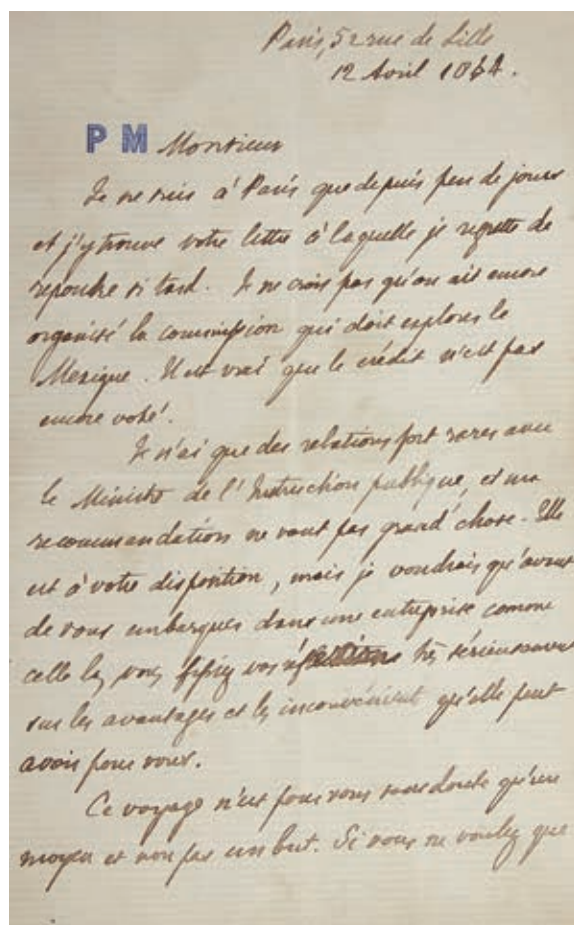 Paris, 52 rue de Lille
12 Avril 1864.
P M Monsieur
Je ne suis à Paris que depuis peu de jours
et j'y trouve votre lettre à laquelle je regrette de
repondre si tard. Je ne crois pas qu'on ait encore
organisé la commission qui doit explorer le
Mexique. Il est vrai que le crédit n'est pas
encore voté.
Je n'ai que des relations fort rares avec
le Ministre de l'Instruction publique, et ma
recommandation ne vaut pas grand'chose. Elle
est à votre disposition, mais je voudrais qu'avant
de vous embarquer dans une entreprise comme
celle là, vous fissiez vos réflexions très sérieusement
sur les avantages et les inconvénients qu'elle peut
avoir pour vous.
Ce voyage n'est pour vous sans doute qu'un
moyen et non pas un but. Si vous ne voulez que